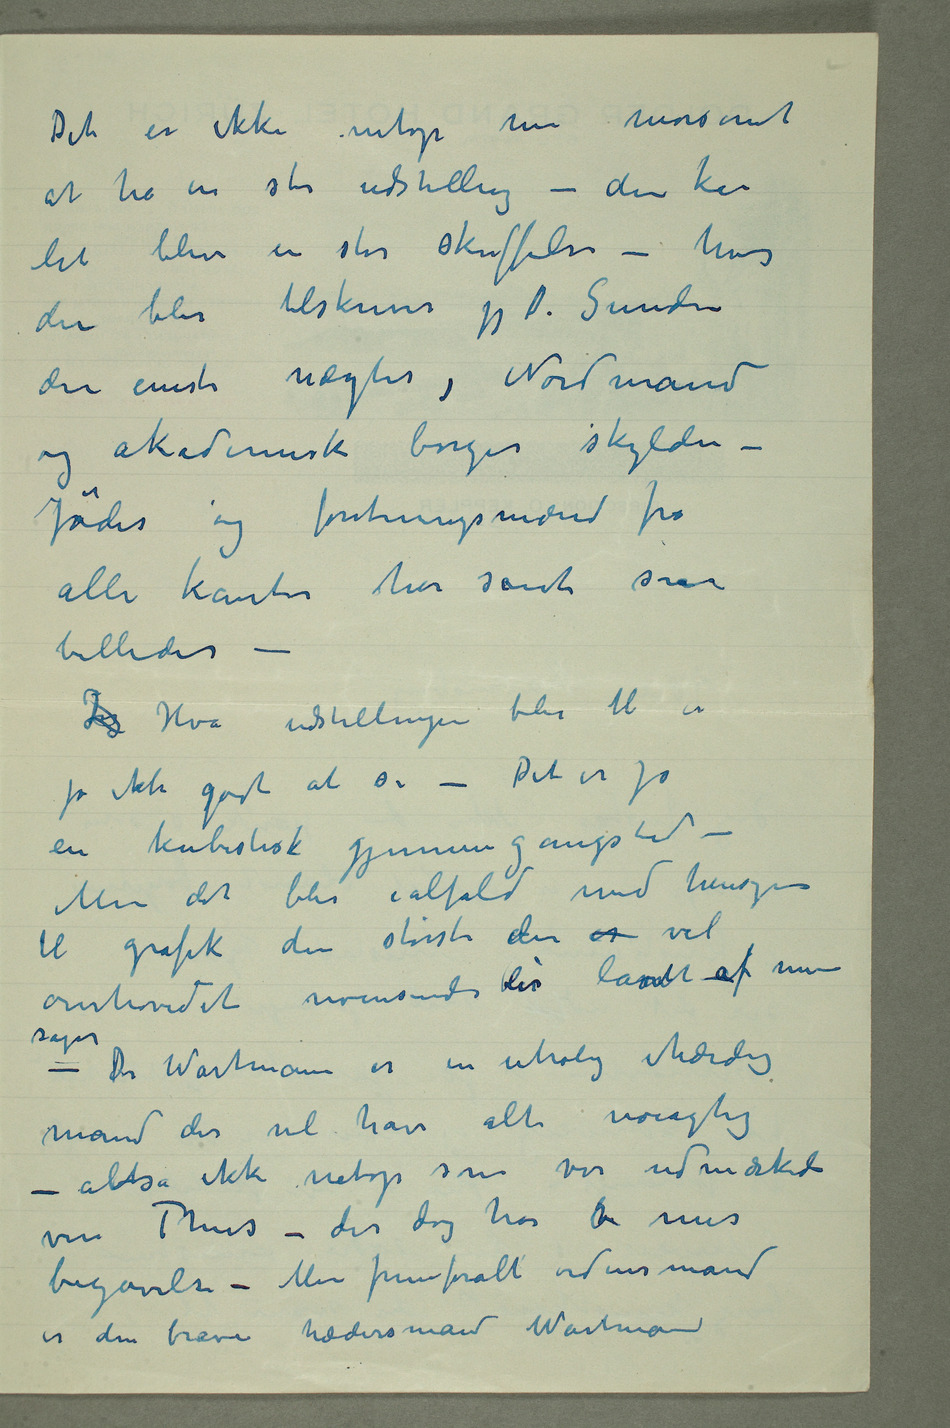 Det er ikke netop mer morsomt
at ha en stor udstilling – den kan
let blive en stor skuffelse – hvis
den blir tilskrives jo D. Sunden
den eneste nægter, Nordmand
og akademisk borger skylden –
Jøder og foretningsmænd fra
alle kanter har sendt sine
billeder –
Jeg Hva udstillingen blir til er
jo ikke godt at se – Det er jo
en kubistisk gjennemgangstid –
Men det blir ialfald med hensyn
til grafik den største der er vel
overhovedet noensinde blir laendt af mine
sager
– Dr Wartmann er en utrolig ihærdig
mand der vil have alt nøiagtig
– altså ikke netop som vor udmærkede
ven Thiis – der dog har mer
begavelse – Men fremforalt ordensmand
er den brave hædersmand Wartmann